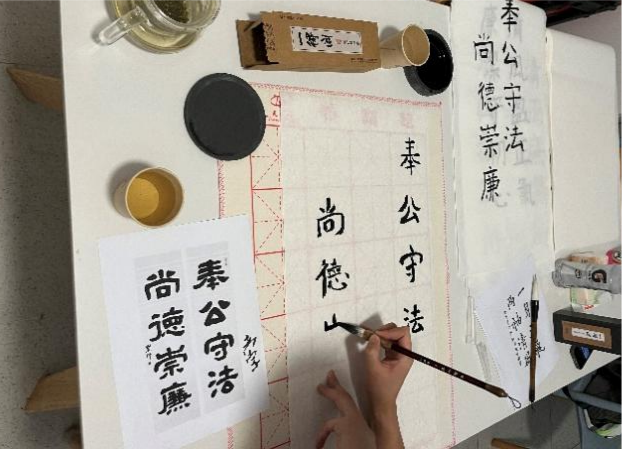 奉公守法
尚德崇廉
奉公守法
尚德山
奉公守法
尚德崇廉